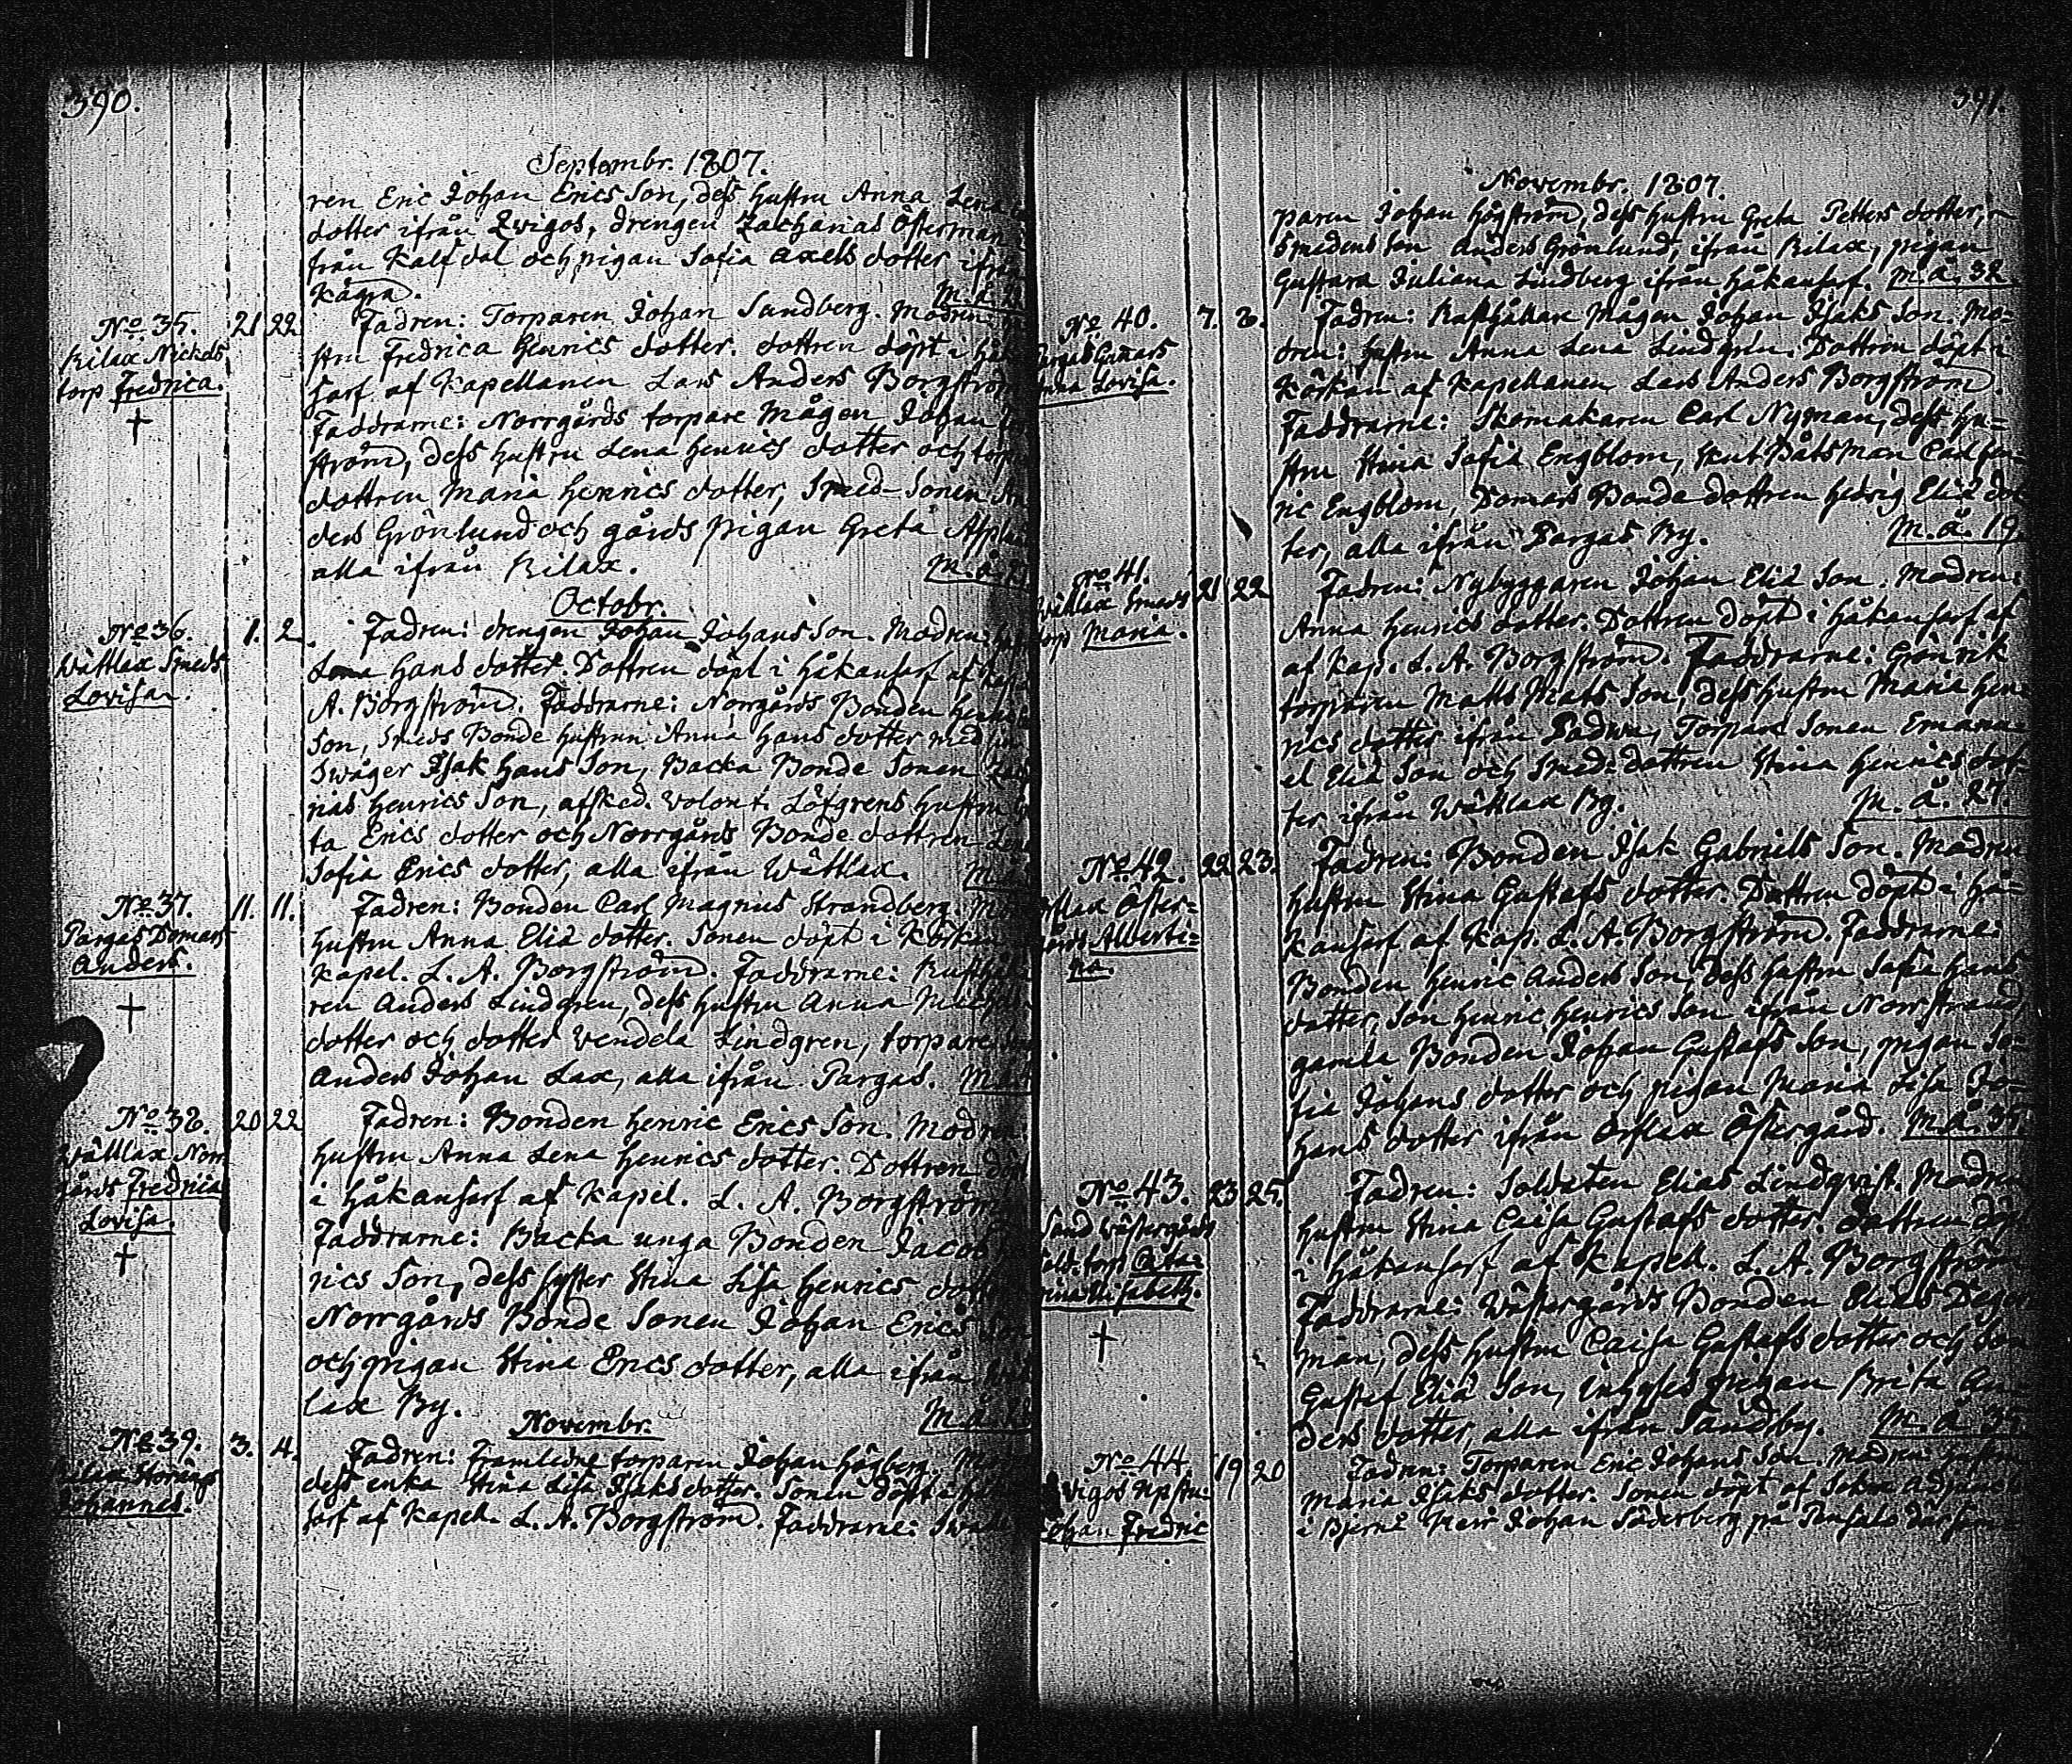 390.
Septembr. 1807.
ren Eric Johan Erics Son, dess hustru Anna Lena
dotter ifrån Zvigos, drengen Zacharias Österman
från Kalfdal och pigan Sofia Axels dotter ifrån
Kågra. M. å.
No 35. 21 22 Fadren: Torparen Johan Sundberg. Modren:
Kilax Nickels stru Fredrica Henrics dotter. dottren döpt i Håkan
torp Fredrica. sarf af Kapellanen Lars Anders Borgström
Faddrarne: Norrgårds torpare Mågen Johan
ström, dess hustru Lena Henrics dotter och torpare
dottren Maria Henrics dotter, Smed-Sonen An
ders Grönlund och gårds pigan Greta
alla ifrån Kilax. M. å.
Octobr.
No 36. 1. 2. Fadren: drengen Johan Johans Son. Modren:
Wättlax Smeds Lena Hans dotter. Dottren döpt i Håkansarf af
Lovisa. A. Borgström. Faddrarne: Norrgårds Bonden Henric
Son, Smeds Bonde hustrun Anna Hans dotter med sin
Swåger Isak Hans Son, Backa Bonde Sonen
rias Henrics Son, afsked. volont. Löfgrens hustru
ta Erics dotter och Norrgårds Bonde dottren
Sofia Erics dotter, alla ifrån Wättlax.
No 37. 11. 11. Fadren: Bonden Carl Magnus Strandberg.
Pargas Domars hustru Anna Eliæ dotter. Sonen döpt i Körkan
Anders. Kapel. L. A. Borgström. Faddrarne: Rusthålla
ren Anders Lindgren, dess hustru Anna
dotter och dotter Vendela Lindgren, torpare
Anders Johan Lax, alla ifrån Pargas. M. å.
No 38. 20 22 Fadren: Bonden Henric Erics Son. Modren:
Wättlax Norr hustru Anna Lena Henrics dotter. Dottren döpt
gårds Fredrica i Håkansarf af Kapel. L. A. Borgström
Lovisa. Faddrarne: Backa unga Bonden Jacob
rics Son, dess syster Stina Lisa Henrics dotter
Norrgårds Bonde Sonen Johan Erics Son
och pigan Stina Erics dotter, alla ifrån
lax By. M. å.
Novembr.
No 39. 3. 4. Fadren: Framledne torparen Johan Högberg.
Kilax dess enka Stina Lisa Isaks dotter. Sonen döpt i
Johannes. sarf af Kapel. L. A. Borgström. Faddrarne:
391.
Novembr. 1807.
paren Johan Högström, dess hustru Greta Petters dotter,
Smedens Son Anders Grönlund, ifrån Kilax, pigan
Gustava Juliana Lindberg ifrån Håkansarf. M. å. 32
No 40. 7. 8. Fadren: Rusthållare Mågen Johan Isaks Son. Mo-
Pargas Gunnars dren: hustru Anna Lena Lindgren. Dottren döpt i
Anna Lovisa. Körkan af Kapellanen Lars Anders Borgström.
Faddrarne: Skomakaren Carl Nyman, dess hu-
stru Stina Sofia Engblom, Båtsman Carl Hen-
ric Engblom, Domars Bonde dottren Hedvig Eliæ dot
ter, alla ifrån Pargas By. M. å. 19.
No 41. 21 22 Fadren: Nybyggaren Johan Eliæ Son. Modren:
Wättlax Smeds Anna Henrics dotter. Dottren döpt i Håkansarf af
torp Maria. af Kap. L. A. Borgström. Faddrarne: Grönvik
torparen Matts Mats Son, dess hustru Maria Hen-
rics dotter ifrån Padwa, Torpare Sonen Emanu-
el Eliæ Son och Smeds dottren Stina Henrics dot-
ter ifrån Wättlax By. M. å. 27.
No 42. 22 23. Fadren: Bonden Isak Gabriels Son. Modren
Öster- hustru Stina Gustafs dotter. Dottren döpt i Hå-
gårds Alberti- kansarf af Kap. L. A. Borgström. Faddrarne:
na. Bonden Henric Anders Son, dess hustru Sofia Hans
dotter, Son Henric Henrics Son ifrån Norrstrand
gamla Bonden Johan Gustafs Son, pigan So-
fia Johans dotter och pigan Maria Lisa Jo-
hans dotter ifrån Östergård. M. å. 35.
No 43. 23 25. Fadren: Soldaten Elias Lindqvist. Modren
Sand Wästergårds hustru Stina Caisa Gustafs dotter. Dottren döpt
sold. torp Cata- i Håkansarf af Kapell. L. A. Borgström
rina Elisabeth. Faddrarne: Wästergårds Bonden Elias Deger
man, dess hustru Caisa Gustafs dotter och Son
Gustaf Eliæ Son, Inhyses pigan Brita An-
ders dotter, alla ifrån Sandby. M. å. 35.
No 44. 19 20 Fadren: Torparen Eric Johans Son. Modren: hustru
Maria Isaks dotter. Sonen döpt af Sokn Adjuncten
Johan Fredric i Bjerne Herr Johan Söderberg på